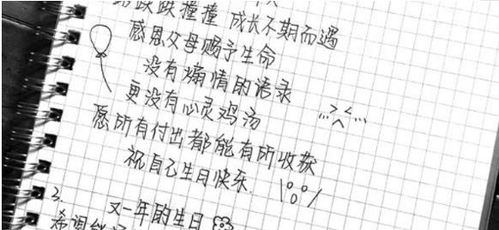 跌跌撞撞 成长不期而遇
感恩父母赐予生命
没有煽情的语录
更没有心灵鸡汤
愿所有付出都能有所收获
祝自己生日快乐.
3.
又一年的生日
希望